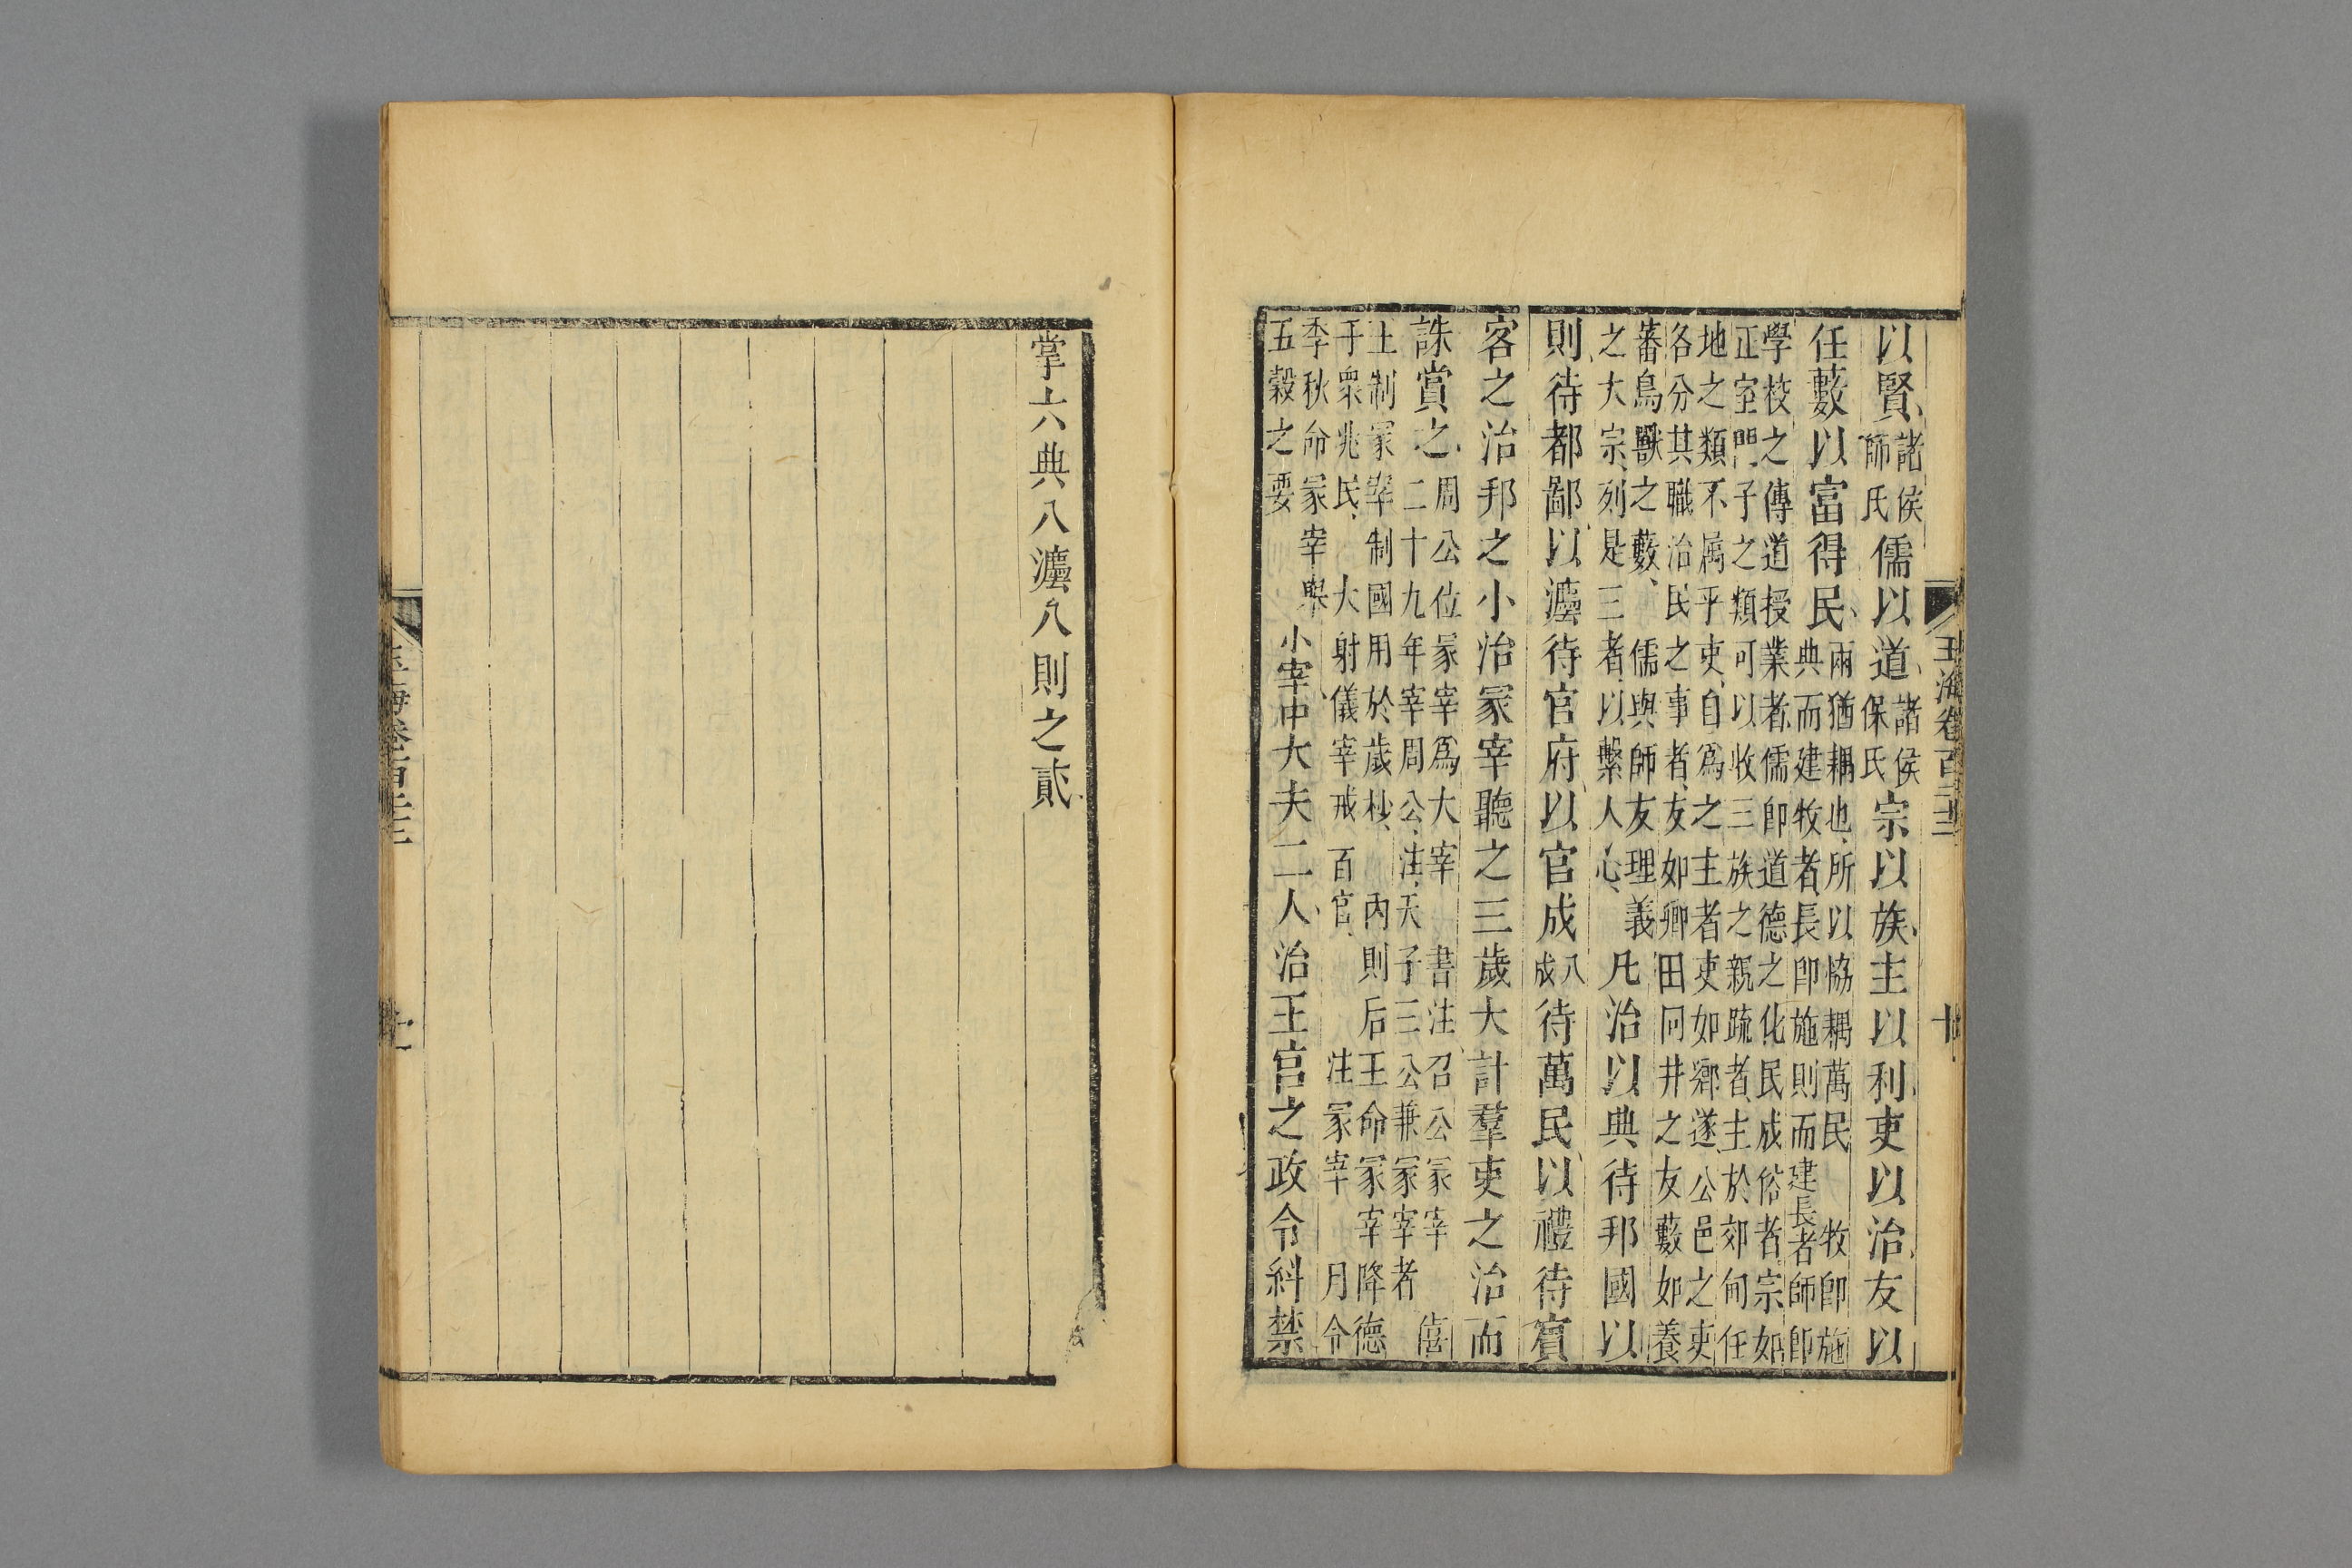 以賢諸侯師氏儒以道諸侯保氏宗以族主以利吏以治友以
任藪以富得民兩猶耦也所以協耦萬民　牧即施典而建牧者長即施則而建長者師即
學校之傳道授業者儒即道德之化民成俗者宗如
正室門子之類可以收三族之親疏者主於郊甸任
地之類不属乎吏自爲之主者吏如鄉遂公邑之吏
各分其職治民之事者友如鄉田同井之友藪如養
蕃鳥獸之藪　儒與師友理義
之大宗列是三者以繫人心　凡治以典待邦國以
則待都鄙以灋待官府以官成八成待萬民以禮待賓
客之治邦之小治冢宰聽之三歲大計羣吏之治而
誅賞之周公位冢宰爲大宰　書注召公冢宰　僖
二十九年宰周公注天子三公兼冢宰者
王制冢宰制國用於歲杪　內則后王命冢宰降德
于衆兆民　大射儀宰戒百官　注冢宰　月令
季秋命冢宰舉
五穀之要　小宰中大夫二人治王宮之政令糾禁
玉海卷百二十三
十
掌六典八灋八則之貳